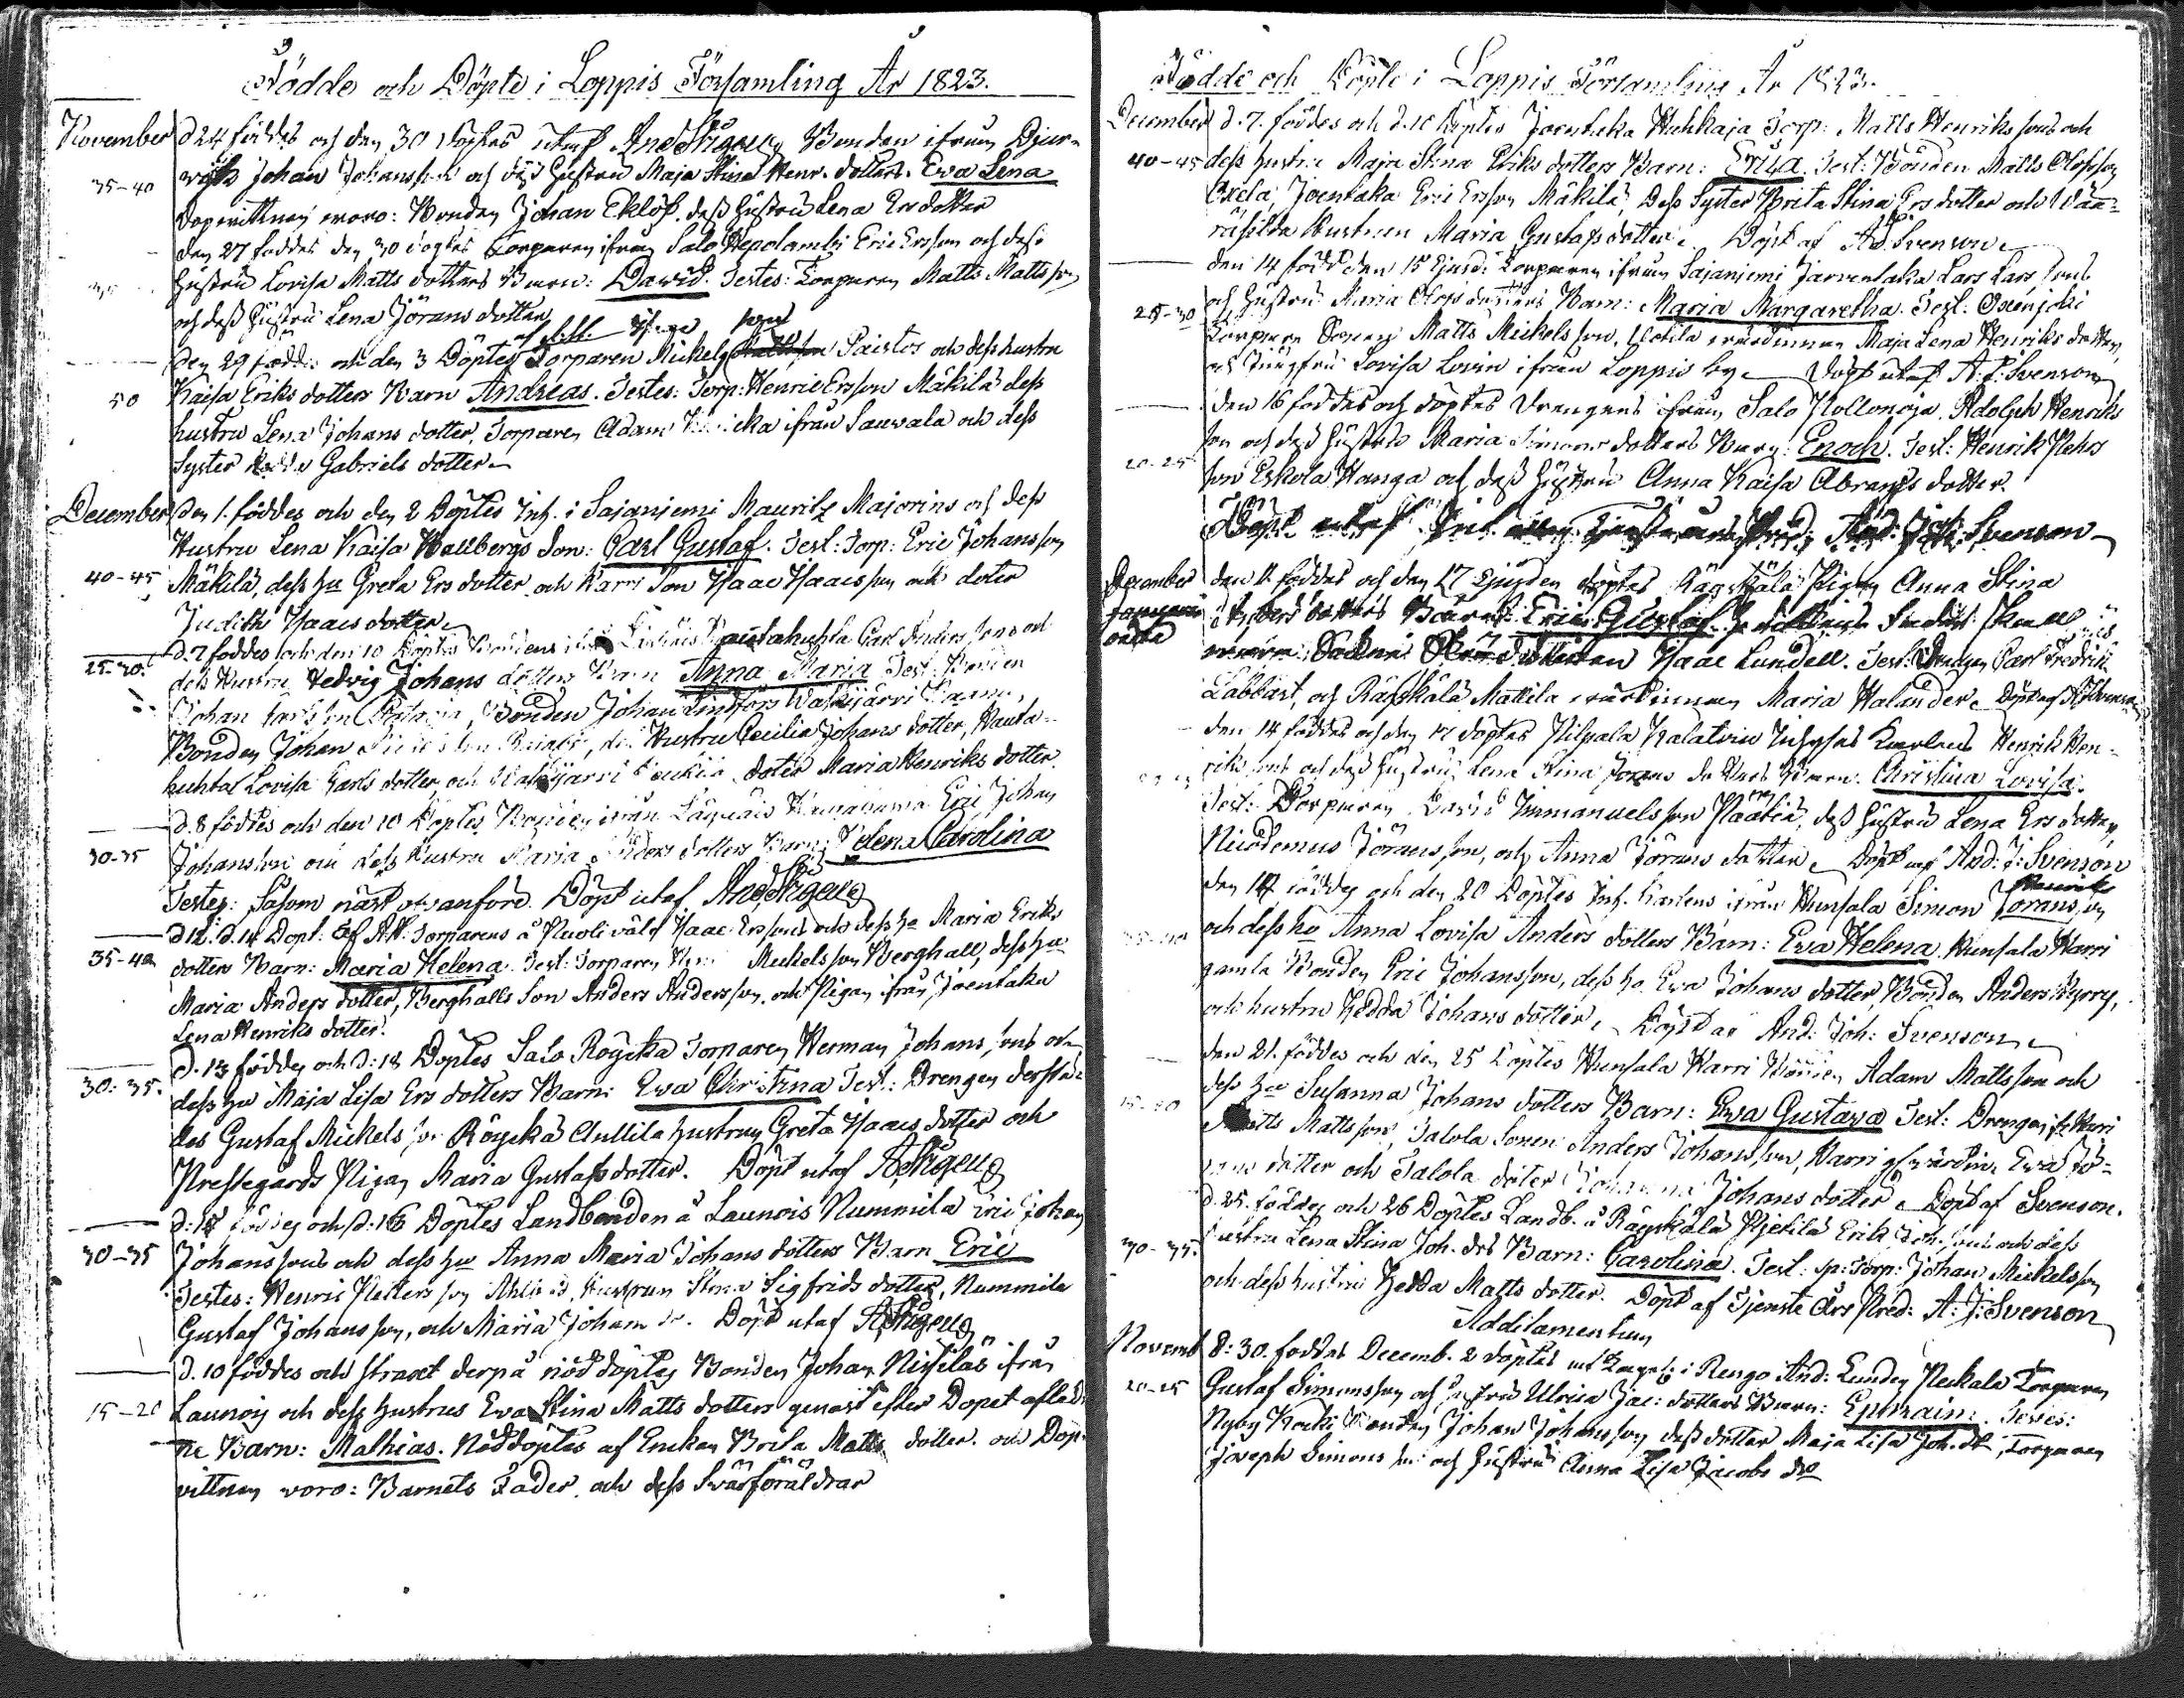 Födde och Döpte i Loppis Församling År 1823.
November d 24 föddes och den 30 döptes utaf And Högeug Bonden ifrån Djur-
35-40 Johan Johansson och dess Hustru Maja Stina Henr. dotters. Ewa Lena
Dopvittnen woro: Bonden Johan Eklöf, dess Hustru Lena Ersdotter
den 27 föddes den 30 döptes Torparen ifrån Salo Hepolambi Eric Ersson och dess
Hustru Lovisa Matts dotters Barn: David. Testes: Torparen Matts Mattson
och dess Hustru Lena Jörans dotter
Den 29 föddes och den 3 Döptes Torparen Mickels Paistos och dess hustru
50 Kaisa Eriks dotters Barn Andreas. Testes: Torp: Henric Ersson Mäkilä dess
hustru Lena Johans dotter, Torparen Adam ifrån Sauvala och dess
Syster Gabriels dotter
December Den 1. föddes och den 2 Döptes Inh. i Sajaniemi Mauritz Majorins och dess
Hustru Lena Kaisa Hallbergs Son: Carl Gustaf. Test: Torp: Eric Johansson
40-45 Mäkilä, dess hu Greta Ers dotter och Karri Son Isaac Isaacsson och doter
Judith Isaacs dotter
D. 7 föddes och den 10 Döptes Bondens Rautakuhta Carl Anders sons och
25-30. dess Hustru Hedvig Johans dotters Barn Anna Maria Test: Bonden
Johan Bonden Johan Lindfors Walkijärvi
Bonden Johan Hustru Cecilia Johans dotter, Rauta-
kuhta Lovisa Carls dotter, och Walkijärvi doter Maria Henriks dotter.
D. 8 föddes och den 10 Döptes Bonden ifrån Läyliäis Eric Johan
30-35 Johansson och dess Hustru Maria dotters Barn: Helena Carolina
Testes: Såsom näst ofvanförd. Döpt utaf And Högeug
d 12. d. 14 Döpt: af AH. Torparens å Puolivälf Isaac Erssons och dess hu Maria Eriks
35-40 dotters Barn: Maria Helena. Test: Torparen Mickelsson Berghall, dess hu
Maria Anders dotter, Berghalls Son Anders Andersson, och Pigan ifrån Joentaka
Lena Henriks dotter.
D. 13 föddes och d: 18 Döptes Salo Röyckä Torparen Herman Johans sons och
30: 35. dess hu Maja Lisa Ers dotters Barn: Ewa Christina Test: Drengen derstä-
des Gustaf Mickels son Röyckä Anttila hustrun Greta Isaacs dotter och
Prestegårds Pigan Maria Gustafsdotter. Döpt utaf A Högeug
d: föddes och d: 16 Döptes Landbonden å Launois Nummila Eric Johan
30-35 Johanssons och dess hu Anna Maria Johans dotters Barn Eric
Testes: Henric Pettersson hustrun Stina Sigfrids dotter, Nummila
Gustaf Johansson, och Maria Johans dr. Döpt utaf A Högeug
D. 10 föddes och straxt derpå nöddöptes Bonden Johan Nissiläs ifrån
15-20 Launois och dess hustrus Ewa Stina Matts dotters genast efter Dopet aflid-
ne Barn: Mathias. Nöddöptes af Enckan Brita Matts dotter. och Dop-
vittnen woro: Barnets Fader, och dess Svärföräldrar
Födde och Döpte i Loppis Församling År 1823.
December d. 7. föddes och d. 10 Döptes Joentaka Huhkaja Torp: Matts Henriks sons och
40-45 dess hustru Maja Stina Eriks dotters Barn: Erica. Test: Bonden Matts Olofsson
Joentaka Eric Ersson Mäkilä, Dess Syster Brita Stina Ers dotter och
Hustrun Maria Gustafs dotter. Döpt af Ad. Svenson
den 14 född den 15 Ejusd: Torparen ifrån Sajaniemi Järventaka Lars Lars sons
25-30 och Hustru Maria Olofs dotters Barn: Maria Margaretha. Test: Oxenjoki
Torparen Matts Mickels son, värdinnan Maja Lena Henriks dotter,
och Jungfru Lovisa Lovin ifrån Loppis by. Döpt utaf A. J. Svenson
den 16 föddes och döptes Drengens ifrån Salo Kollonoja, Adolph Henriks
20-25 son och dess Hustrus Maria Simons dotters Barn: Enoch. Test: Henrik Pehrs
son Eskola Wanga och dess Hustru Anna Kaisa Abrams dotter.
Döpt utaf And. Joh. Svenson
December den 11 föddes och den 17 Ejusdem döptes Räyskälä Pigan Anna Stina
dotters Barn: Eric Gustaf.
Isaac Lundell. Test: Drengen Carl Fredrik
Labbart, och Räyskälä Mattila värdinnan Maria Walander. Döpt af Svenson
den 14 föddes och den 17 döptes Pilpala Kalatvin Inhyses Karlens Henrik Hen-
riks sons och dess Hustrus Lena Stina Jörans dotters Barn: Christina Lovisa.
Test: Torparen David Immanuelsson, dess Hustru Lena Ers dotter,
Nicodemus Jöransson, och Anna Jörans dotter. Döpt af And: J: Svenson
den föddes och den 20 Döptes Inh. Karlens ifrån Hunsala Simon Henriks
och dess hu Anna Lovisa Anders dotters Barn: Ewa Helena. Hunsala Karri
gamla Bonden Eric Johansson, dess hu Ewa Johans dotter, Bonden Anders Kyrry,
och hustru Hedda Johans dotter. Döpt af And: Joh: Svenson
den 21. föddes och den 25 Döptes Hunsala Karri Bonden Adam Mattsson och
15-20 dess hu Susanna Johans dotters Barn: Ewa Gustava Test: Drengen fr. Karri
Matts Mattsson, Talola Sonen Anders Johansson, Karri värdin. Ewa Jö-
rans dotter och Talola doter Johanna Johans dotter. Döpt af Svenson.
d. 25. föddes och 26 Döptes Landb. å Räyskälä Pietilä Erik Joh. sons och dess
30-35. Hustru Lena Stina Joh. drs Barn: Carolina. Test: sp: Torp: Johan Mickelsson
och dess hustru Hedda Matts dotter. Döpt af Tjenste Års Pred: A: J: Svenson
Additamentum
Novemb D: 30. föddes Decemb. 2 döptes af i Rengo And: Lunden Peckala Torparen
20-25 Gustaf Simonsson och Hustru Ulrica Jac: dotters Barn: Ephraim. Testes:
Nyby Bonden Johan Johansson dess dotter Maja Lisa Joh. dr, Torparen
Joseph Simons son och Hustru Anna Lisa Jacobs dr